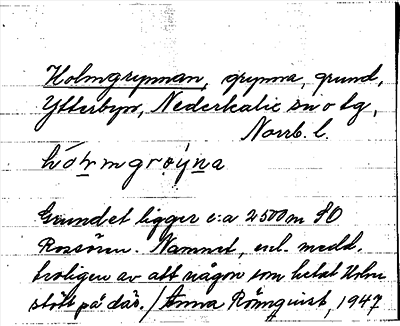 Holmgrynnan, grynna, grund,
Ytterbyn, Nederkalix sn o tg,
Norrb. l.
Grundet ligger c:a 2500 m SO
Rossören. Namnet, enl. medd.
troligen av att någon som hetat Holm
stött på där. / Anna Rönnquist, 1947